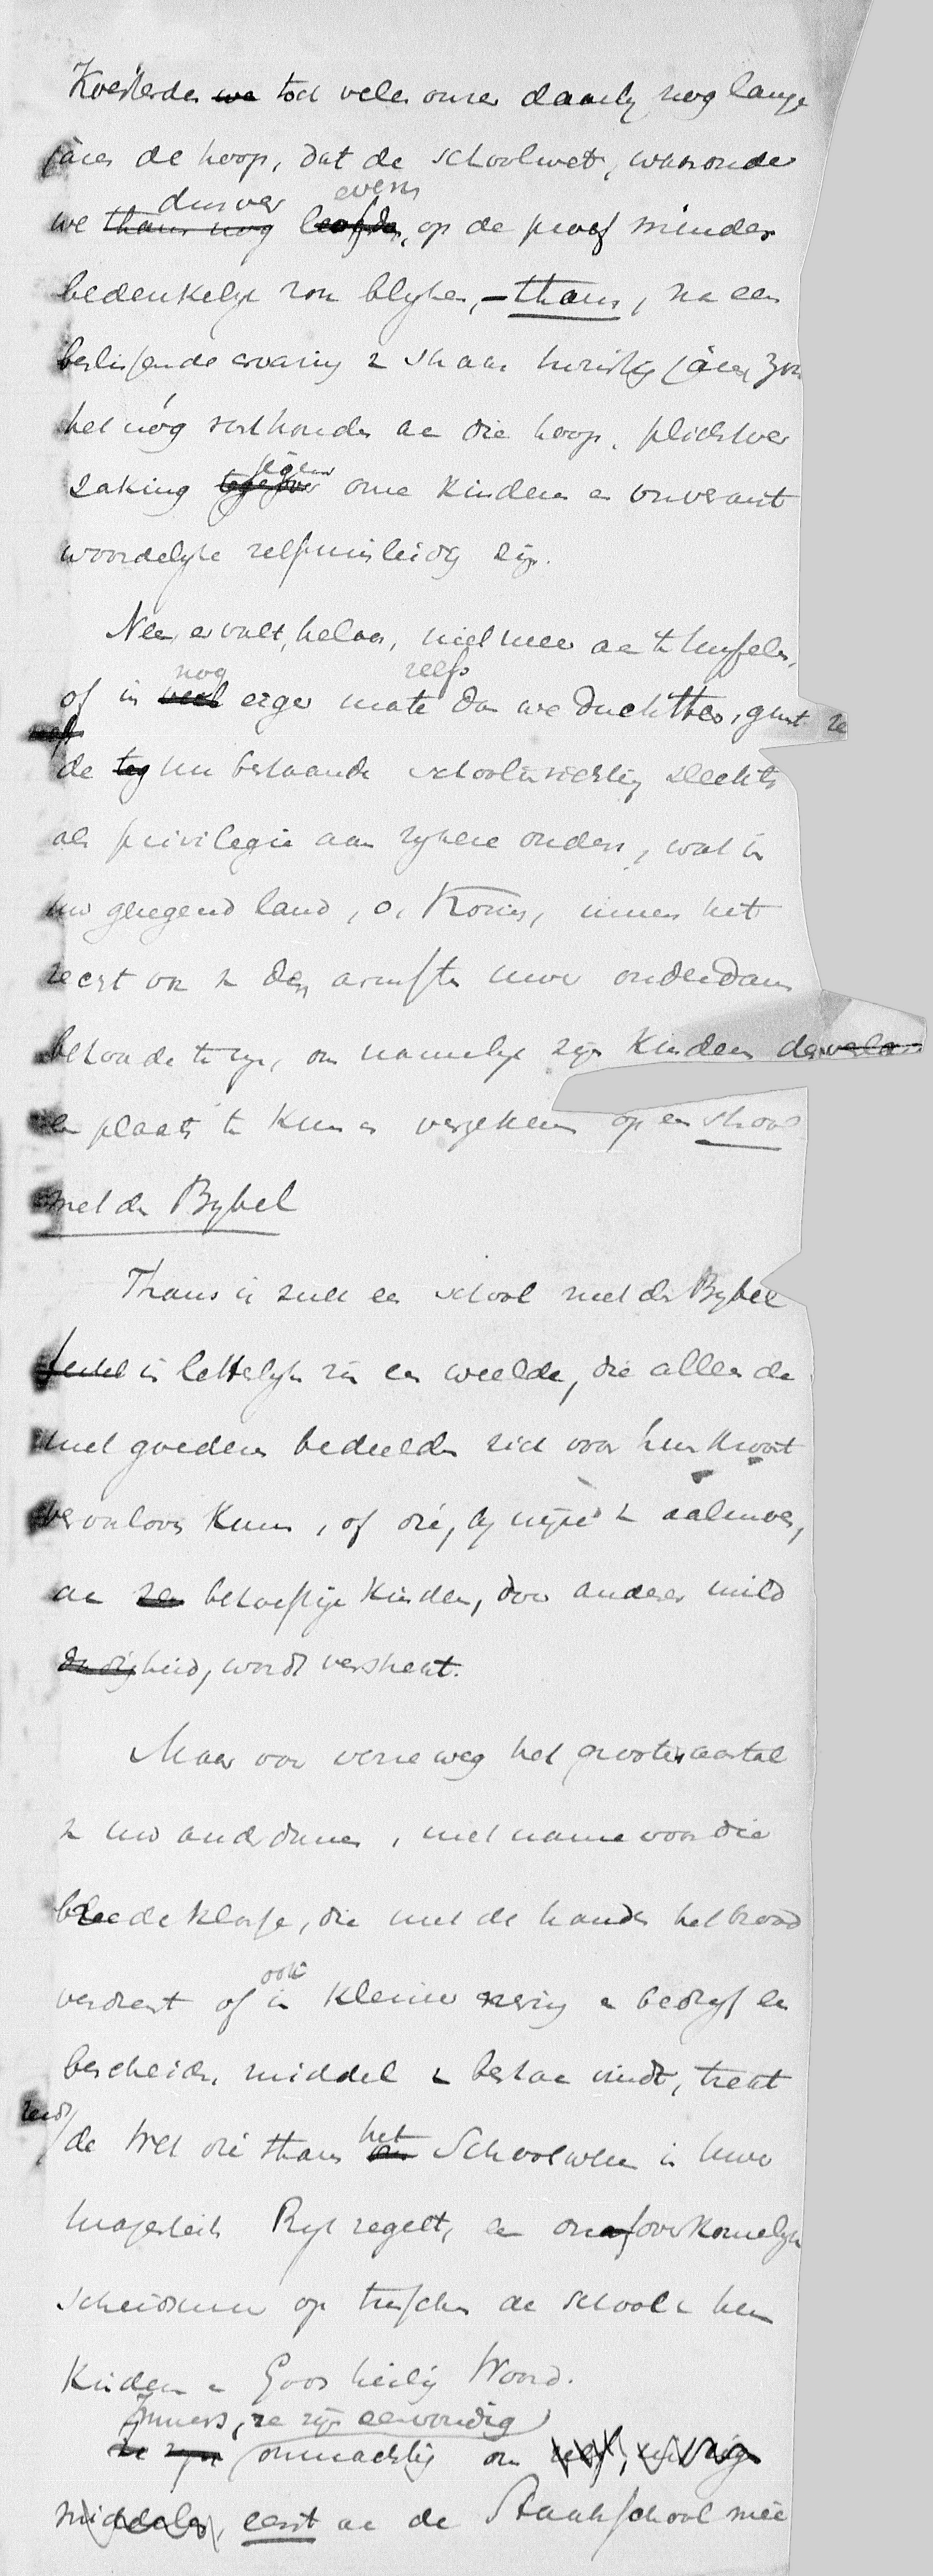 Koesterden we toch velen onzer daarbij nog lange
jaren de hoop, dat de schoolwet, waaronder
dusver evens
we thans nog leefden, op de proef minder
bedenkelijk zou blijken, – thans, na een
beslissende ervaring van twintig jaren, zou
het nóg vasthouden aan die hoop, plichtver
zaking jegens
tegenover onze kinderen en onverant
woordelyke zelfmisleiding zijn.
Neen, er valt, helaas, niet meer aan te twyfelen,
nog zelfs
of in veel erger mate dan we duchtten, gunt ze
de teg nu bestaande schoolinrichting slechts
als privilegie aan rykere ouders, wat in
uw gezegend land, o, Koning, immers het
recht ook van den armste uwer onderdanen
behoorde te zyn, om namelyk zyn kinderen
een plaats te kunnen verzekeren op een school
met den Bybel
Thans is zulk een school met den Bybel
in letterlyken zin een weelde, die alleen de
met goederen bedeelden zich voor hun kroost
veroorloven kunnen, of die, by wyze van aalmoes,
aan behoeftige kinderen, door anderer mild
dadigheid, wordt verstrekt.
Maar voor verreweg het grootste aantal
van uw onderdanen, met name voor die
breede klasse, die met de handen het brood
ook
verdient of in kleine nering en bedryf een
bescheiden middel van bestaan vindt, trekt
de Wet die thans het Schoolwezen in Uwer
Majesteits Ryk regelt, een onoverkomelyken
scheidsmuur op tusschen de school van hun
kinderen en Gods heilig Woord.
Immers, ze zyn eenvoudig
ze zyn onmachtig om
middelen, eerst aan de Staatsschool mee